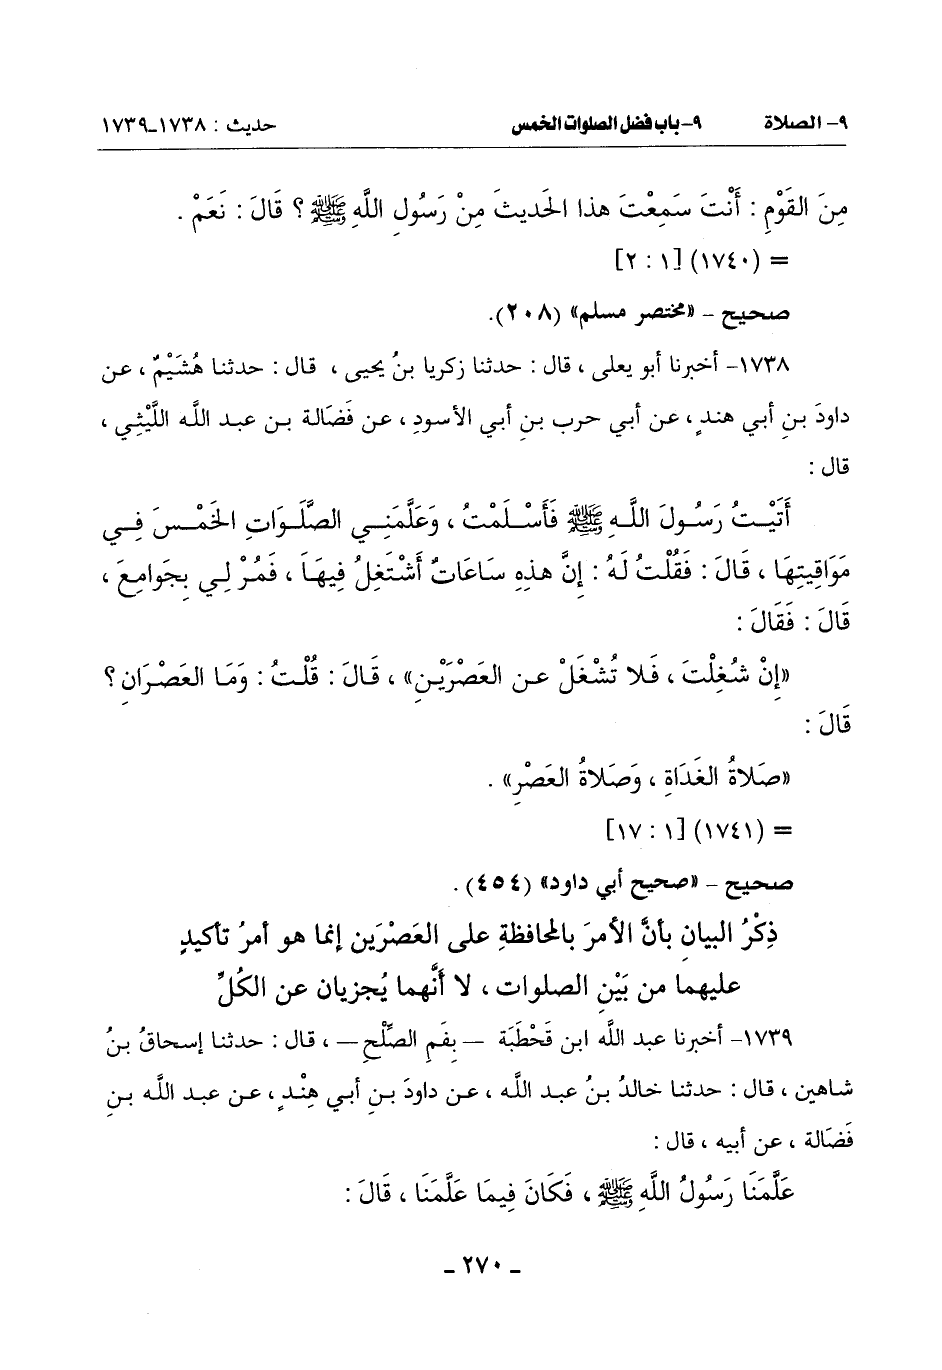 ٩- الصلاة ٩-باب فضل الصلوات الخمس حديث : ١٧٣٨-١٧٣٩
مِنَ القَوْمِ : أَنْتَ سَمِعْتَ هذا الحَديثَ مِنْ رَسُولِ اللَّهِ ﷺ ؟ قَالَ : نَعَمْ .
= (١٧٤٠) [١ : ٢]
صحيح - «مختصر مسلم» (٢٠٨).
١٧٣٨- أخبرنا أبو يعلى ، قال : حدثنا زكريا بنُ يحيى ، قال : حدثنا هُشَيْمٌ ، عن
داودَ بنِ أبي هندٍ ، عن أبي حرب بنِ أبي الأسودِ ، عن فَضَالة بن عبد الله اللَّيْثِي ،
قال :
أَتَيْتُ رَسُولَ اللَّهِ ﷺ فَأَسْلَمْتُ ، وَعَلَّمَنِي الصَّلَوَاتِ الخَمْسَ فِي
مَوَاقِيتِهَا ، قَالَ : فَقُلْتُ لَهُ : إِنَّ هذِهِ سَاعَاتٌ أَشْتَغِلُ فِيهَا ، فَمُرْ لِي بِجَوامِعَ ،
قَالَ : فَقَالَ :
«إِنْ شُغِلْتَ ، فَلا تُشْغَلْ عنِ العَصْرَيْنِ» ، قَالَ : قُلْتُ : وَمَا العَصْرَانِ ؟
قَالَ :
«صَلاةُ الغَدَاةِ ، وَصَلاةُ العَصْرِ» .
= (١٧٤١) [١ : ١٧]
صحيح - «صحيح أبي داود» (٤٥٤).
ذِكْرُ البيانِ بأنَّ الأمرَ بالمحافظةِ على العَصْرَين إنما هو أمرُ تأكيدٍ
عليهما من بَيْنِ الصلوات ، لا أنَّهما يُجزيان عن الكُلِّ
١٧٣٩- أخبرنا عبد اللَّه ابن قَحْطَبَة —بِفَمِ الصِّلْحِ— ، قال : حدثنا إسحاقُ بنُ
شاهين ، قال : حدثنا خالدُ بنُ عبد اللَّه ، عن داودَ بنِ أبي هِنْدٍ ، عن عبد اللَّه بنِ
فَضَالة ، عن أبيه ، قال :
عَلَّمَنَا رَسُولُ اللَّهِ ﷺ ، فَكَانَ فِيمَا عَلَّمَنَا ، قَالَ :
- ٢٧٠ -